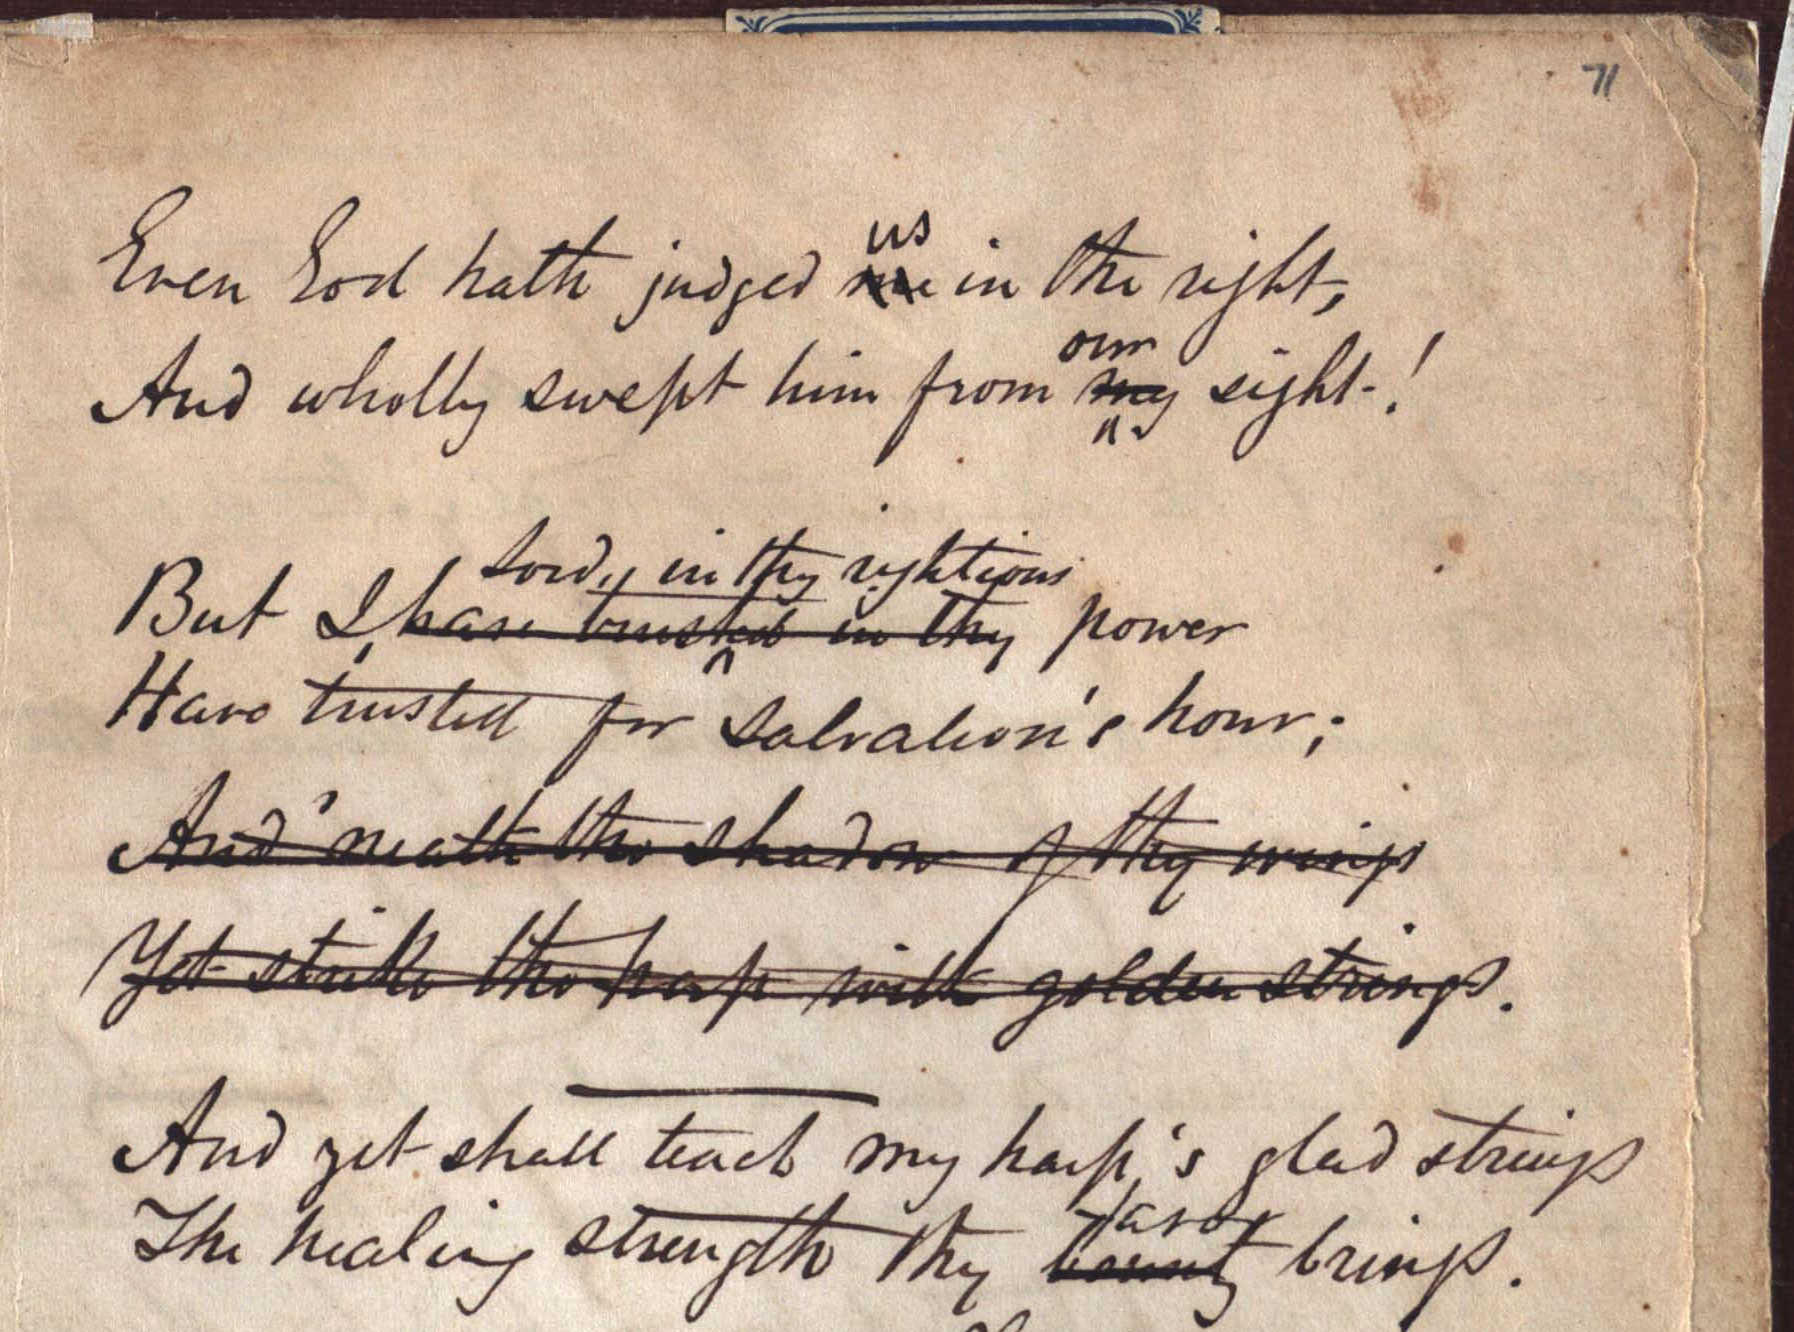 71
us
Even God hath judged me in the right,
our
And wholly swept him from my sight!
Lord, in thy rightious
But I, have trusted in thy power
Have trusted for salvation's hour;
And 'neath the shadow of thy wings
Yet strike the harp with golden strings.
And yet shall teach my harp's glad strings
favor
The healing strength thy bounty brings.